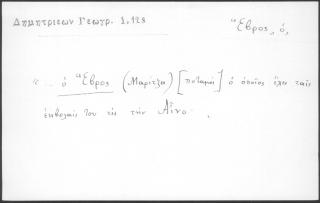 Δημητριεων Γεωγρ. 1,128
Ἕβρος, ὁ,
"... ὁ Ἕβρος (Μαρίτζα) [ποταμὸς] ὁ ὁποῖος ἔχει ταῖς
ἐκβολαῖς του εἰς τὴν Αἶνο.